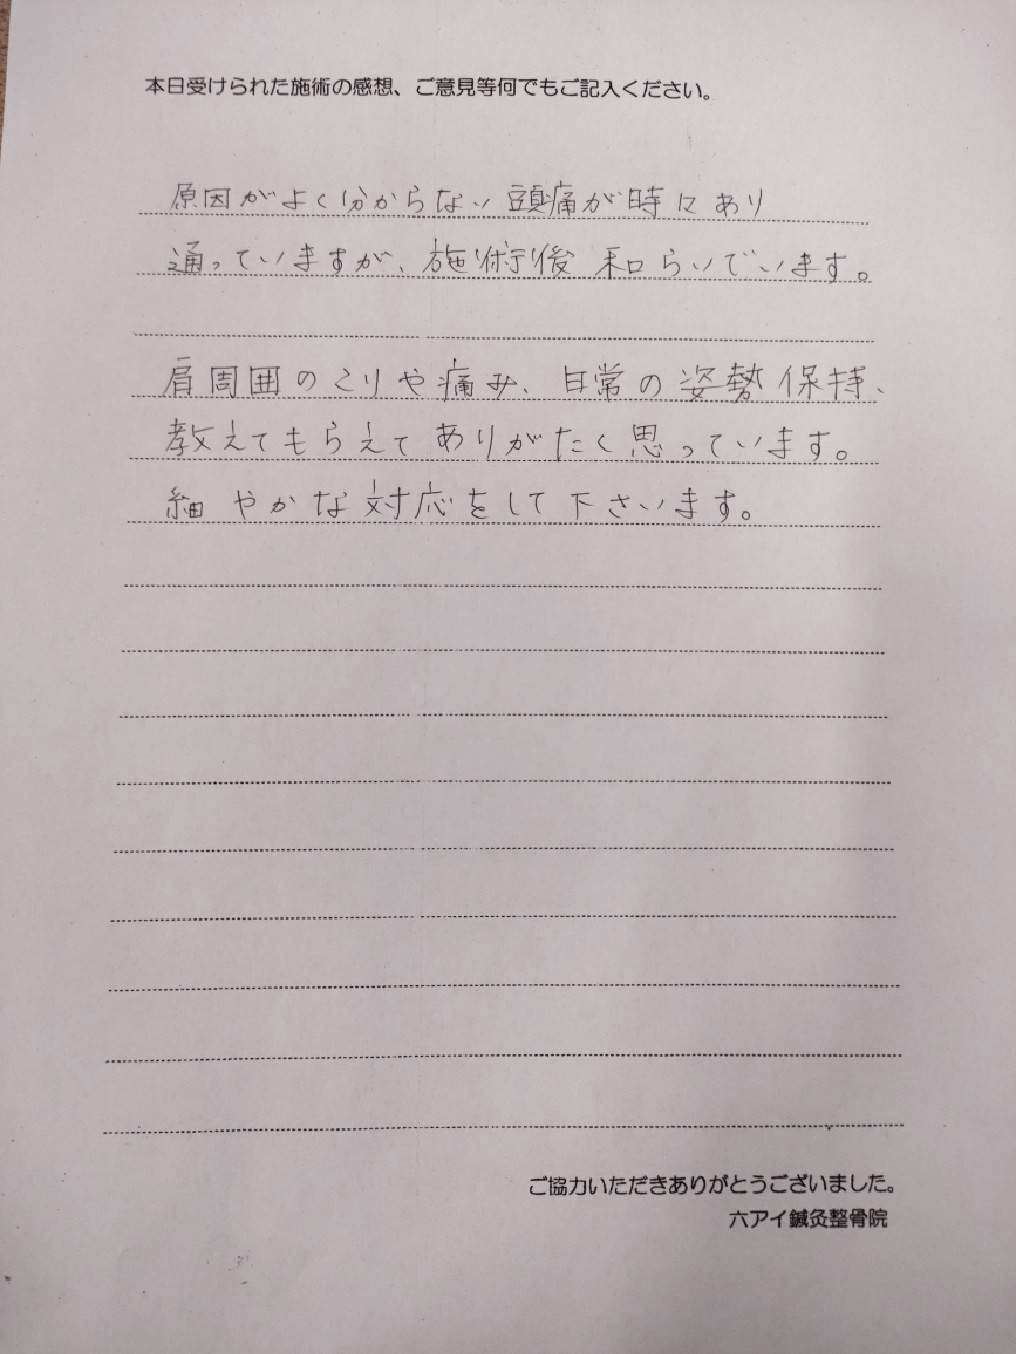 本日受けられた施術の感想、ご意見等何でもご記入ください。
原因がよく分からない頭痛が時々あり
通っていますが、施術後和らいでいます。
肩周囲のこりや痛み、日常の姿勢保持、
教えてもらえてありがたく思っています。
細やかな対応をして下さいます。
ご協力いただきありがとうございました。
六アイ鍼灸整骨院